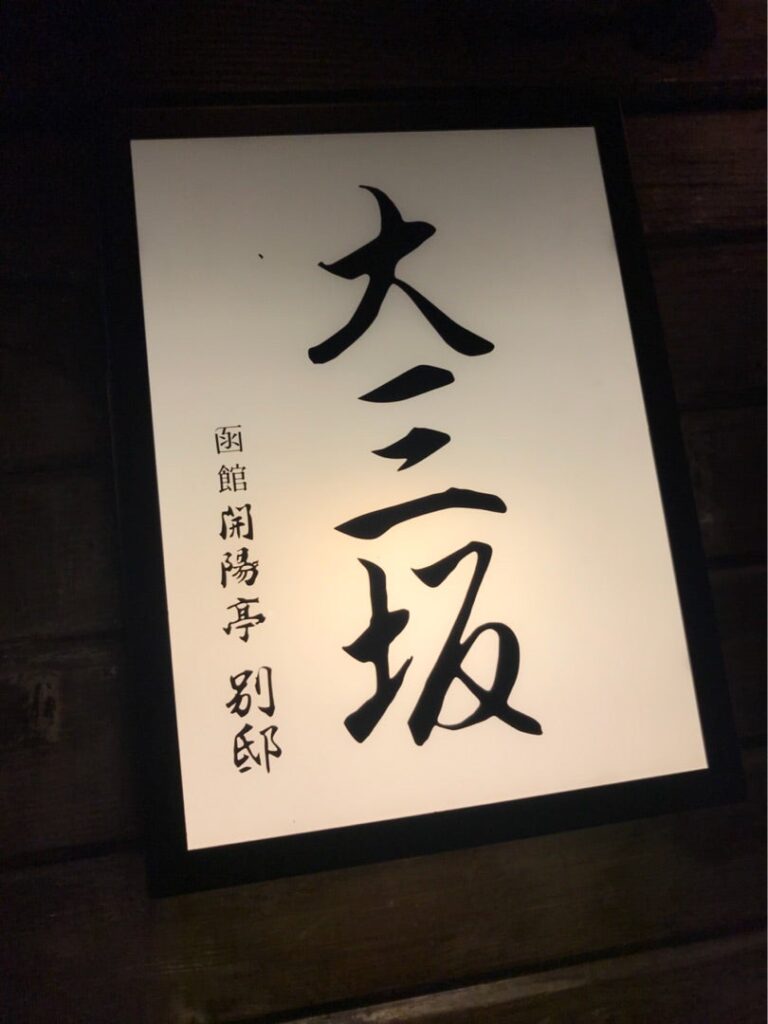 大三坂
函館開陽亭 別邸